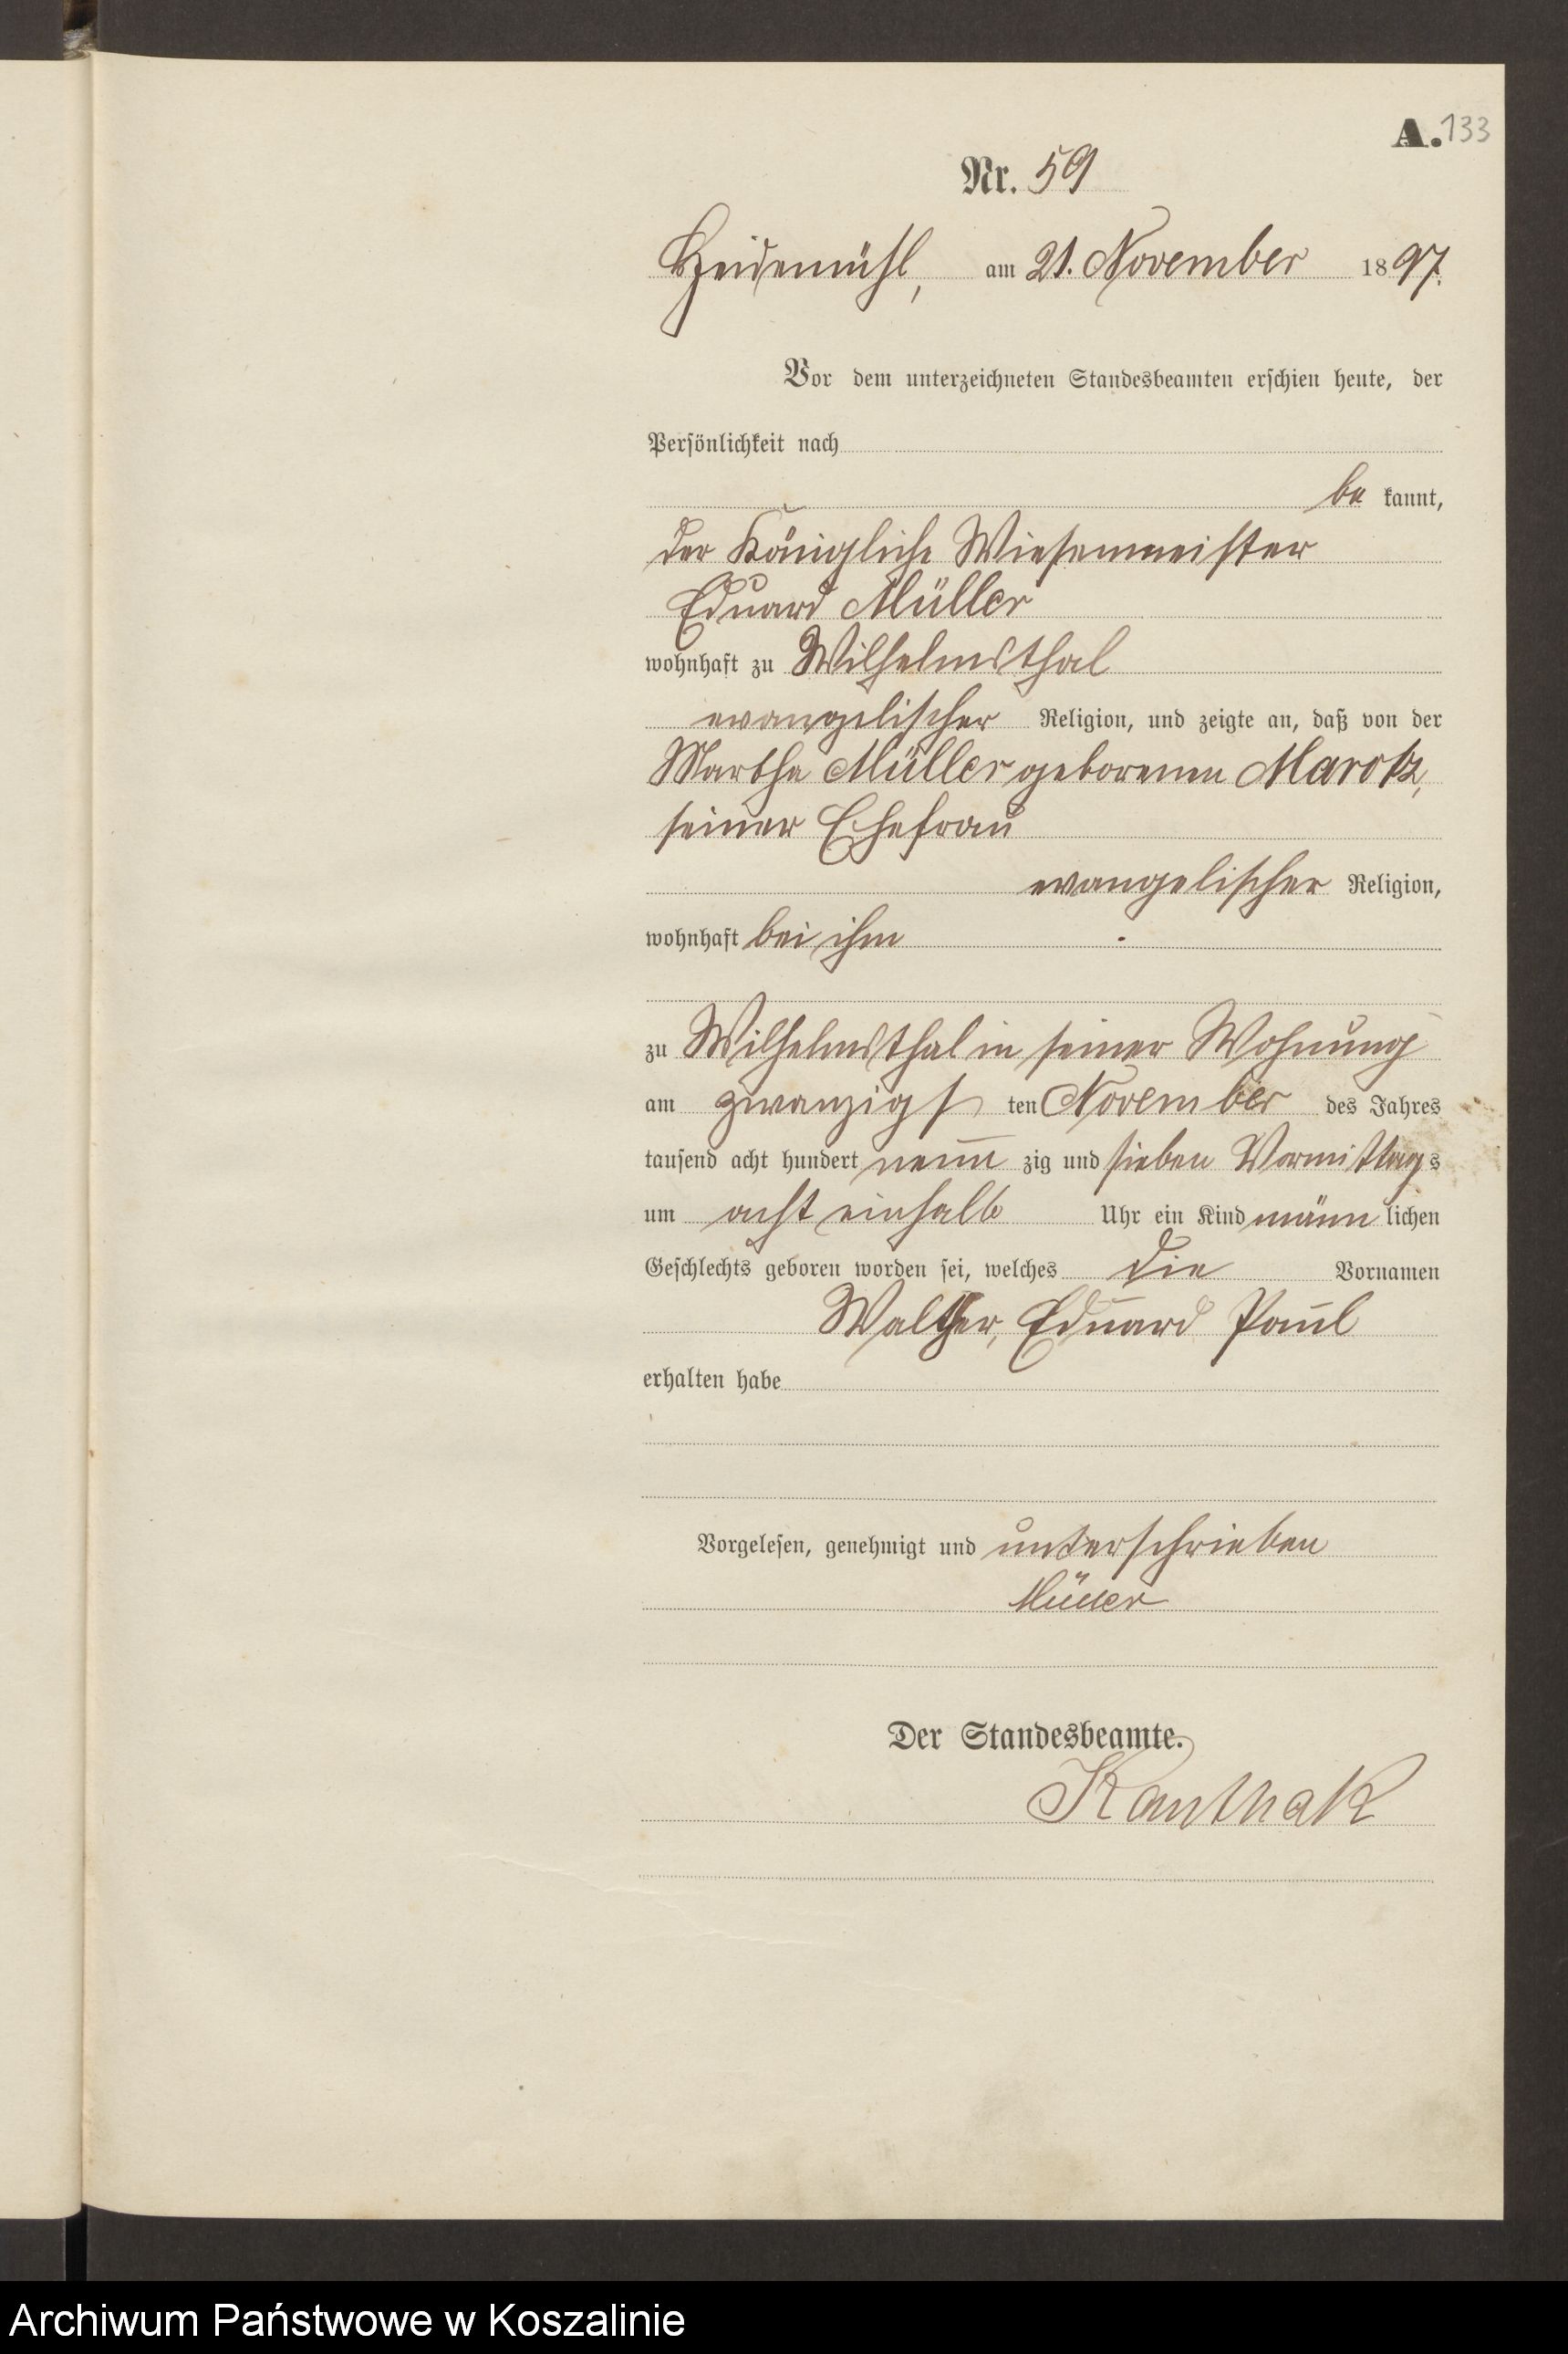 A. 133
Nr. 59
Heidemühl, am 21. November 1897.
Vor dem unterzeichneten Standesbeamten erschien heute, der
Persönlichkeit nach
be kannt,
der Königliche Wiesenmeister
Eduard Müller
wohnhaft zu Wilhelmsthal
evangelischer Religion, und zeigte an, daß von der
Martha Müller geborenen Marotz,
seiner Ehefrau
evangelischer Religion,
wohnhaft bei ihm
zu Wilhelmsthal in seiner Wohnung
am zwanzigs ten November des Jahres
tausend acht hundert neun zig und sieben Vormittag s
um acht einhalb Uhr ein Kind männ lichen
Geschlechts geboren worden sei, welches die Vornamen
Walther, Eduard Paul
erhalten habe
Vorgelesen, genehmigt und unterschrieben
Müller
Der Standesbeamte.
Kanthak
Archiwum Państwowe w Koszalinie